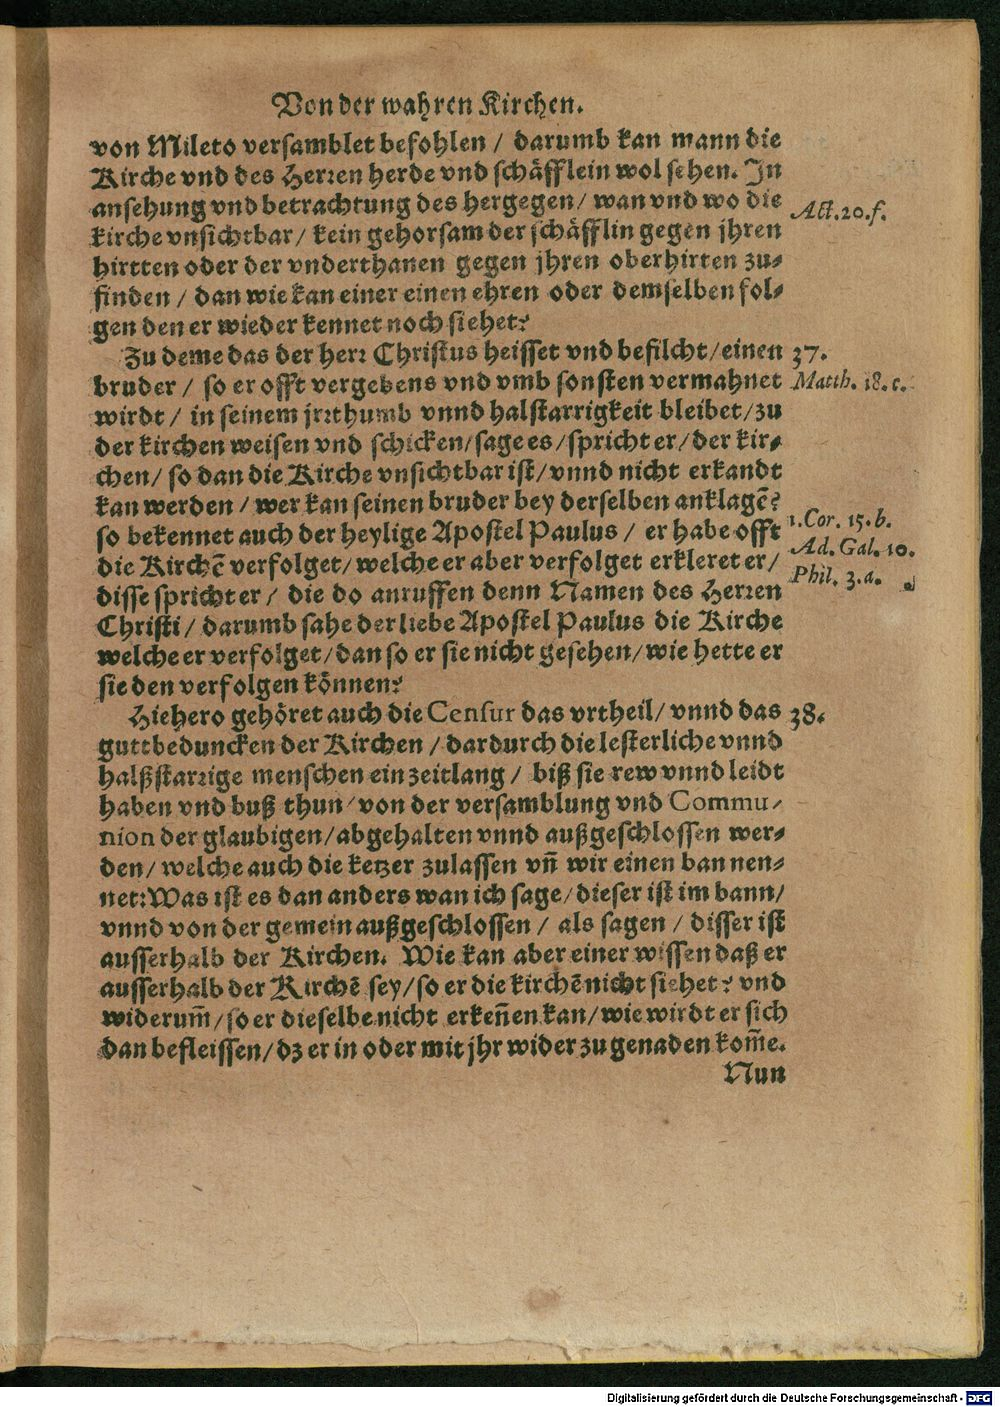 Von der wahren Kirchen.
von Mileto versamblet befohlen / darumb kan mann die
Kirche vnd des Herren herde vnd schäfflein wol sehen. In
ansehung vnd betrachtung des hergegen / wan vnd wo die
Act. 20. f.
kirche vnsichtbar / kein gehorsam der schäfflin gegen jhren
hirtten oder der vnderthanen gegen jhren oberhirten zu-
finden / dan wie kan einer einen ehren oder demselben fol-
gen den er wieder kennet noch siehet?
Zu deme das der herr Christus heisset vnd befilcht / einen
37.
bruder / so er offt vergebens vnd vmb sonsten vermahnet
Matth. 18. c.
wirdt / in seinem jrrthumb vnnd halstarrigkeit bleibet / zu
der kirchen weisen vnd schicken / sage es / spricht er / der kir-
chen / so dan die Kirche vnsichtbar ist / vnnd nicht erkandt
kan werden / wer kan seinen bruder bey derselben anklagē?
1. Cor. 15. b.
so bekennet auch der heylige Apostel Paulus / er habe offt
Ad. Gal. 10.
die Kirchē verfolget / welche er aber verfolget erkleret er /
Phil. 3. a.
disse spricht er / die do anruffen denn Namen des Herren
Christi / darumb sahe der liebe Apostel Paulus die Kirche
welche er verfolget / dan so er sie nicht gesehen / wie hette er
sie den verfolgen können?
Hiehero gehöret auch die Censur das vrtheil / vnnd das
38.
guttbeduncken der Kirchen / dardurch die lesterliche vnnd
halßstarrige menschen ein zeitlang / biß sie rew vnnd leidt
haben vnd buß thun / von der versamblung vnd Commu-
nion der glaubigen / abgehalten vnnd außgeschlossen wer-
den / welche auch die ketzer zulassen vn̄ wir einen ban nen-
net: Was ist es dan anders wan ich sage / dieser ist im bann /
vnnd von der gemein außgeschlossen / als sagen / disser ist
ausserhalb der Kirchen. Wie kan aber einer wissen daß er
ausserhalb der Kirchē sey / so er die kirchē nicht siehet? vnd
widerum̄ / so er dieselbe nicht erken̄en kan / wie wirdt er sich
dan befleissen / dz er in oder mit jhr wider zu genaden kom̄e.
Nun
Digitalisierung gefördert durch die Deutsche Forschungsgemeinschaft - DFG